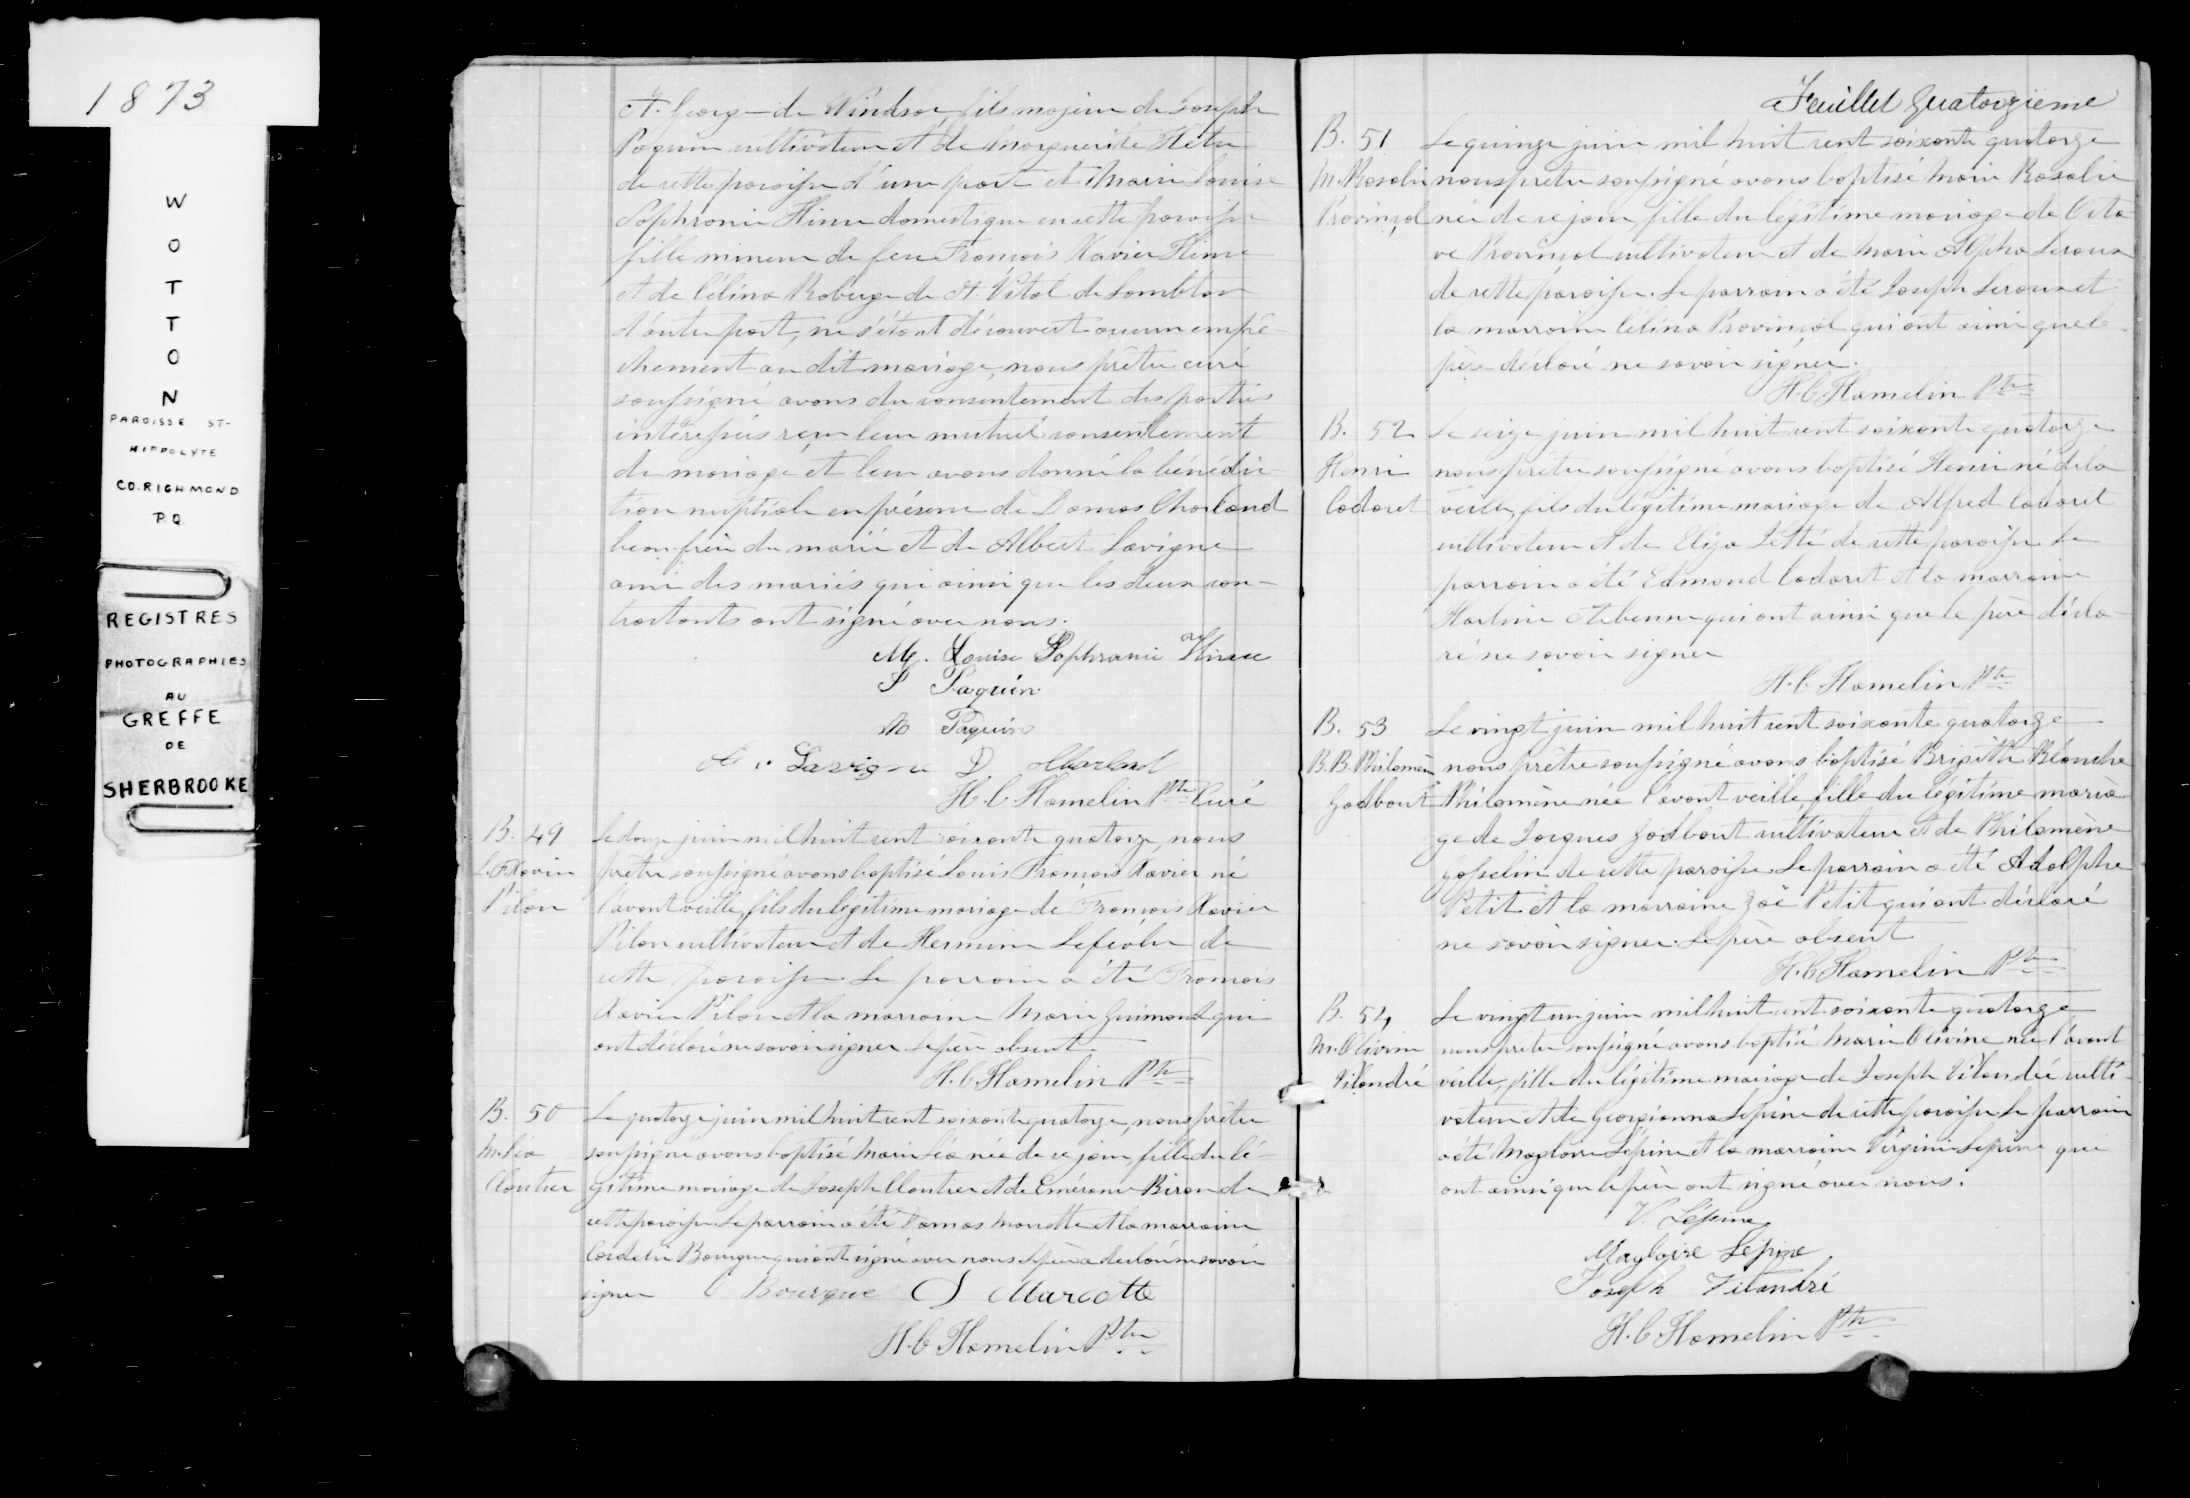 1873
W
O
T
T
O
N
PAROISSE ST-
HIPPOLYTE
CO. RICHMOND
P.Q.
REGISTRES
PHOTOGRAPHIES
AU
GREFFE
DE
SHERBROOKE
St. George de Windsor, fils majeur de Joseph
Paquin cultivateur et de Marguerite Hétu
de cette paroisse d'une part et Marie Louise
Sophronie Hinse domestique en cette paroisse
fille mineure de feu François Xavier Hinse
et de Célina Roberge de St. Vital de Lambton
d'autre part, ne s'étant découvert aucun empê-
chement au dit mariage, nous prêtre curé
soussigné avons du consentement des parties
intéressées reçu leur mutuel consentement
de mariage et leur avons donné la bénédic-
tion nuptiale en présence de Damas Charland
beau-frère du marié et de Albert Lavigne
ami des mariés qui ainsi que les deux con-
tractants ont signé avec nous.
M. Louise Sophronie Hinse
Paquin
Paquin
A. Lavigne D Charland
H. C Hamelin Ptre Curé
B. 49 Le douze juin mil huit cent soixante quatorze, nous
L. F. Xavier prêtre soussigné avons baptisé Louis François Xavier né
Pilon l'avant veille, fils du légitime mariage de François Xavier
Pilon cultivateur et de Hermine Lefebvre de
cette paroisse. Le parrain a été François
Xavier Pilon et la marraine Marie Guimond qui
ont déclaré ne savoir signer le père absent.
H. C Hamelin Ptre
B. 50 Le quatorze juin mil huit cent soixante quatorze, nous prêtre
M. Léa soussigné avons baptisé Marie Léa née de ce jour, fille du lé-
Cloutier gitime mariage de Joseph Cloutier et de Emérence Biron de
cette paroisse Le parrain a été Damas Marcotte et la marraine
Cordelie Bourque qui ont signé avec nous le père a déclaré ne savoir
signer C Bourque D Marcotte
H. C Hamelin Ptre
Feuillet Quatorzième
B. 51 Le quinze juin mil huit cent soixante quatorze
M. Rosalie nous prêtre soussigné avons baptisé Marie Rosalie
Provençal née de ce jour, fille du légitime mariage de Octa
ve Provençal cultivateur et de Marie Alpha Leroux
de cette paroisse. Le parrain a été Joseph Leroux et
la marraine Célina Provençal qui ont ainsi que le
père déclaré ne savoir signer.
H. C Hamelin Ptre
B. 52 Le seize juin mil huit cent soixante quatorze
Henri nous prêtre soussigné avons baptisé Henri né de la
Cadoret veille, fils du légitime mariage de Alfred Cadoret
cultivateur et de Eliza Letté de cette paroisse Le
parrain a été Edmond Cadoret et la marraine
qui ont ainsi que le père décla-
ré ne savoir signer
H. C Hamelin Ptre
B. 53 Le vingt juin mil huit cent soixante quatorze
B. B. Philomène nous prêtre soussigné avons baptisé Brigitte Blanche
Godbout Philomène née l'avant veille, fille du légitime maria
ge de Jacques Godbout cultivateur et de Philomène
Gosselin de cette paroisse. Le parrain a été Adolphe
Petit et la marraine Zoé Petit qui ont déclaré
ne savoir signer. Le père absent
H. C Hamelin Ptre
B. 54 Le vingt un juin mil huit cent soixante quatorze
M. Olivine nous prêtre soussigné avons baptisé Marie Olivine née l'avant
Vilandré veille, fille du légitime mariage de Joseph Vilandré culti-
vateur et de Georgianna Lépine de cette paroisse Le parrain
a été Magloire Lépine et la marraine Virginie Lépine qui
ont ainsi que le père ont signé avec nous.
V. Lépine
Magloire Lépine
Joseph Vilandré
H. C Hamelin Ptre